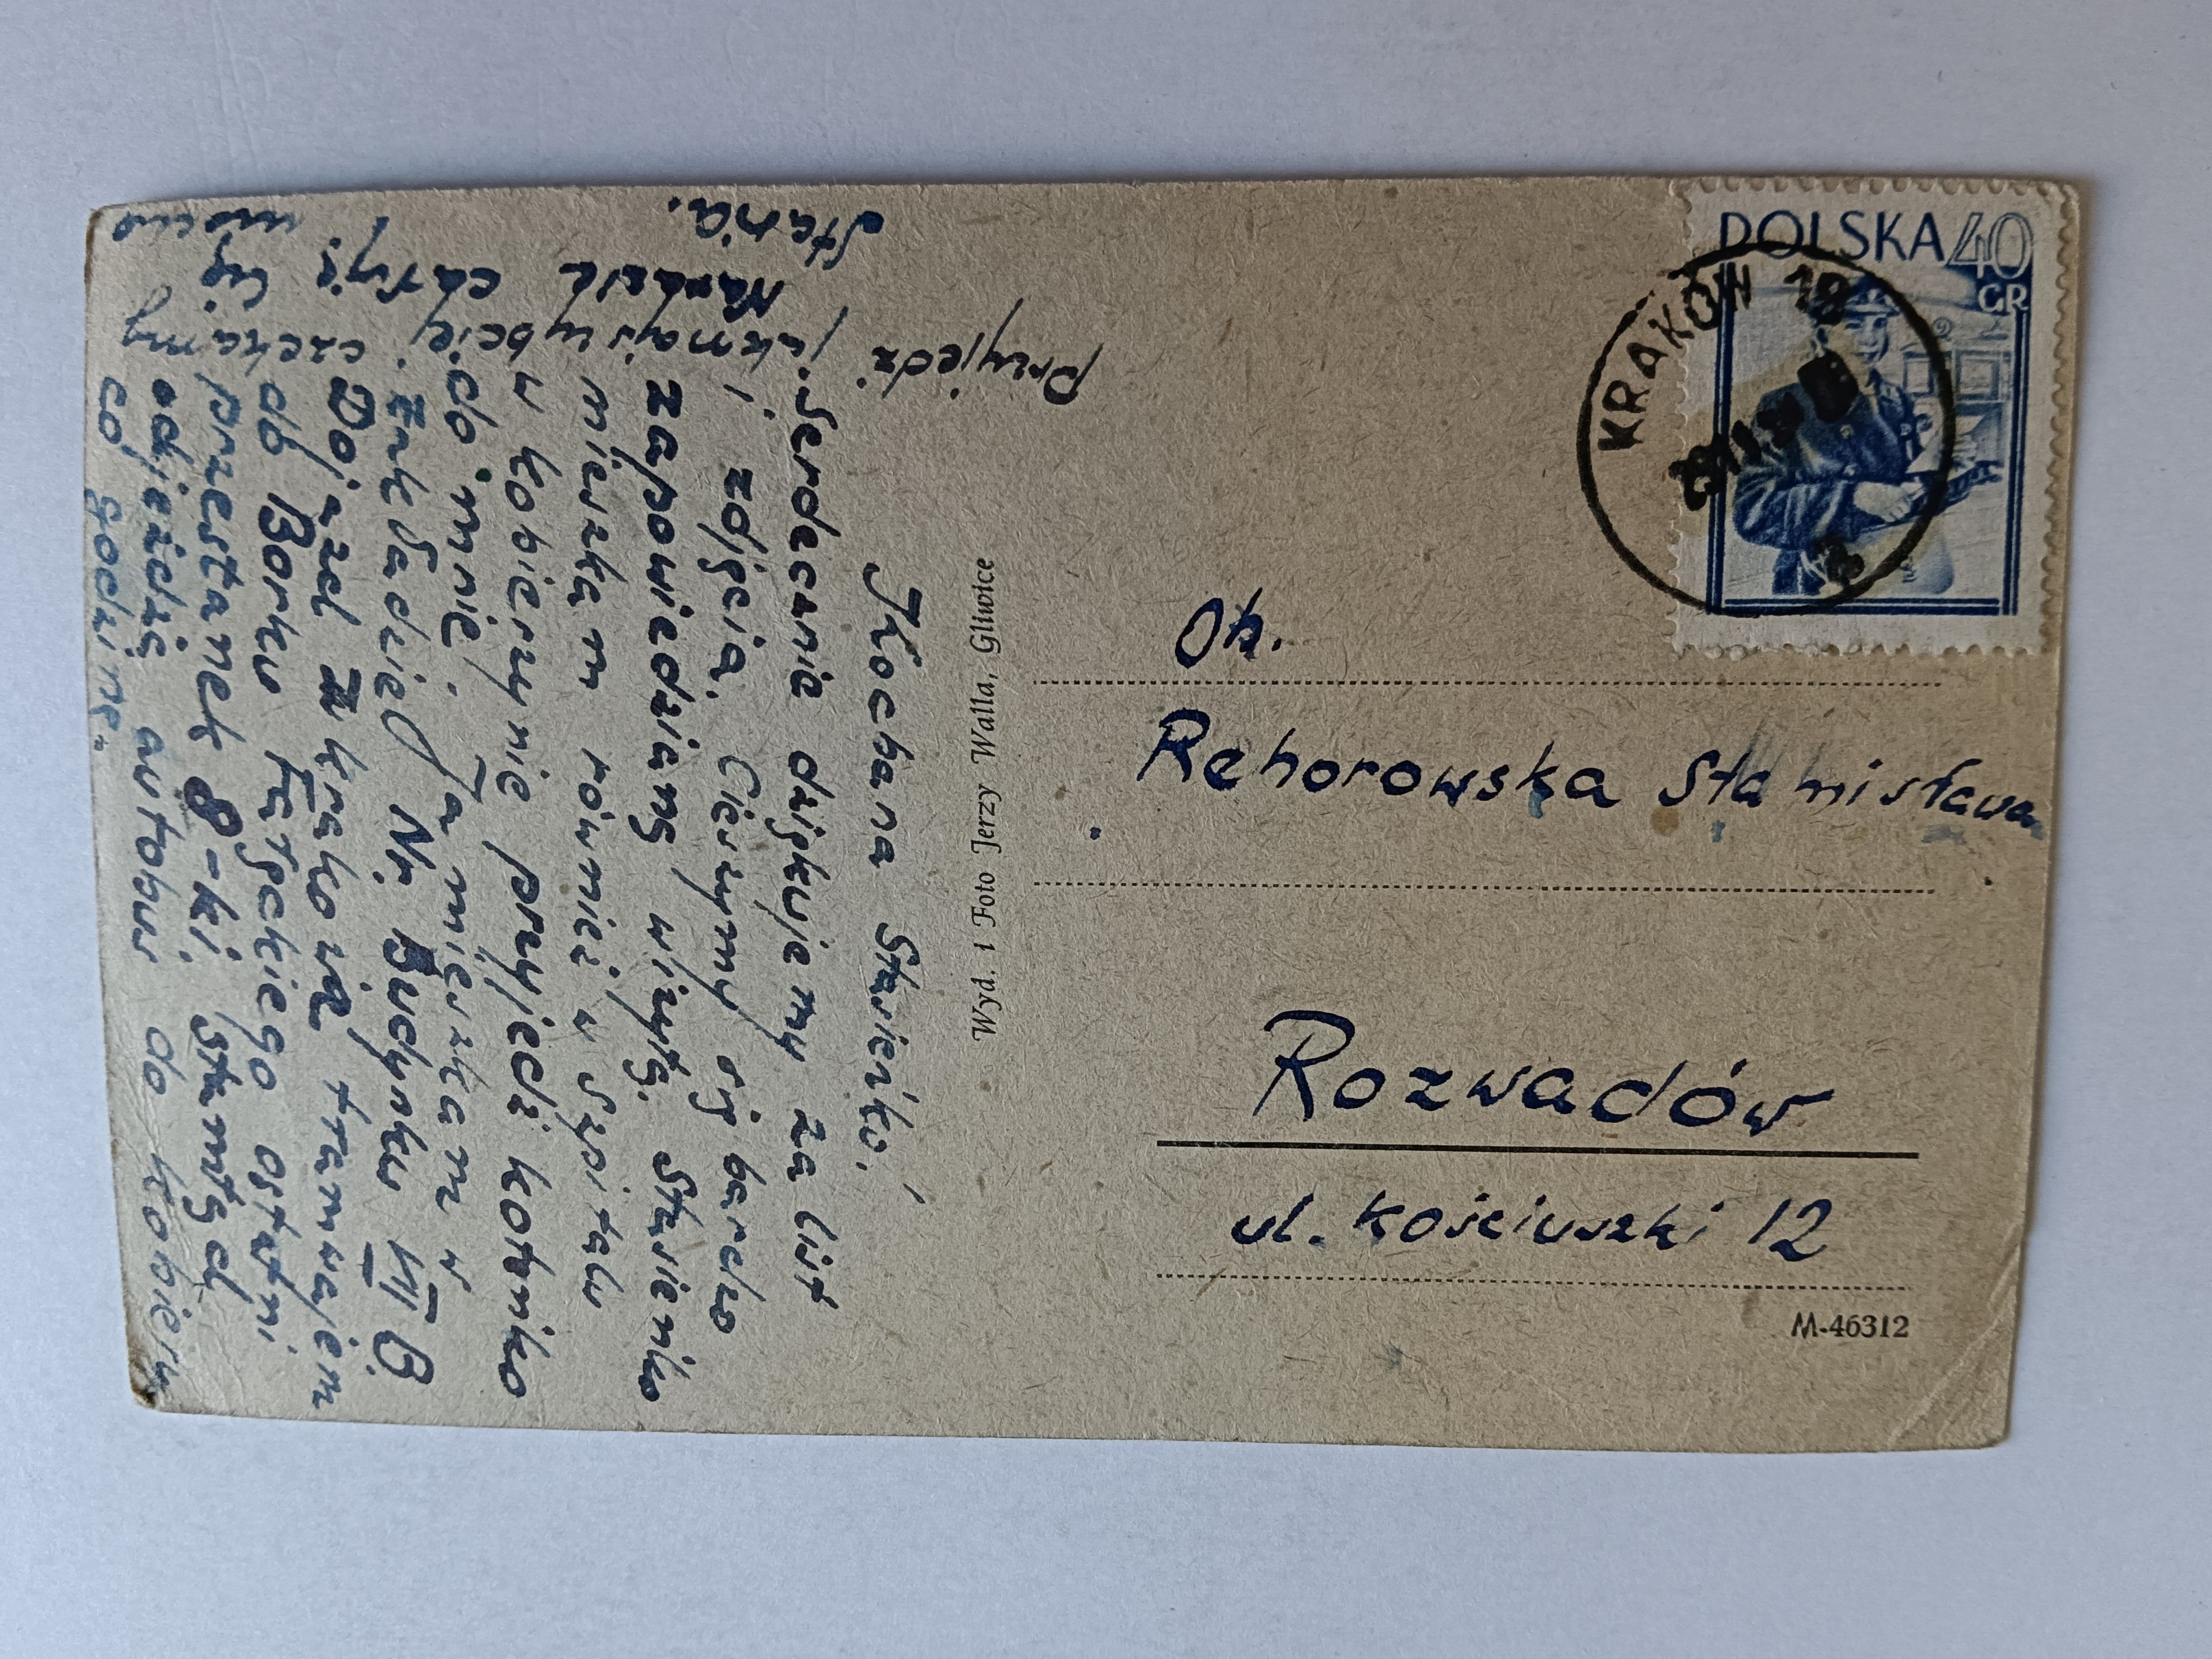 Kochana Stasieńko!
Serdecznie dziękujemy za list
i zdjęcia. Cieszymy się bardzo
zapowiedzianą wizytą. Stasieńko
mieszkam również w Szpitalu
w kobierzynie przyjedź kotuńko
do mnie. Ja mieszkam w
Zakładzie Nr. Budynku VII B
Dojazd z krakowa tramwajem
do Borku Fałęckiego ostatni
przestanek 8-ki. Stamtąd
odjeżdża autobus do kobierzyna
co godzinę.
czekamy
Cię
mocno
Przyjedź
jaknajszybciej
Narazie całuję
Stania.
Wyd. i Foto Jerzy Walla, Gliwice
POLSKA 40
GR
KRAKÓW 18
Ob.
Rehorowska Stanisława
Rozwadów
ul. kościuszki 12
M-46312